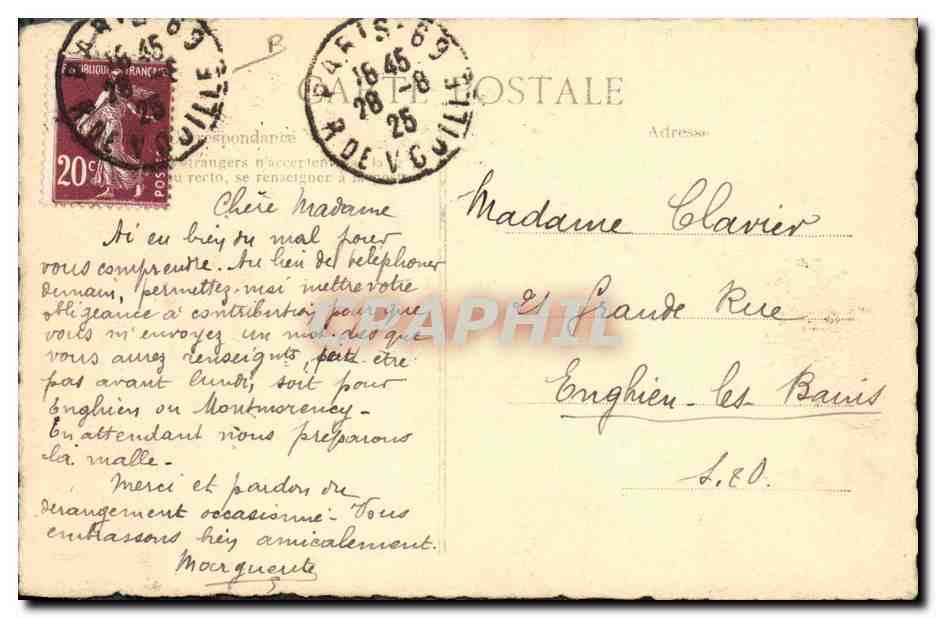 B
PARIS·69
16 45
28 -8
25
R DE V
PARIS·69
16 45
28 -8
25
R DE V
RÉPUBLIQUE FRANÇAISE
20c
POSTES
CARTE POSTALE
Correspondance
Adresse
étrangers n'acceptent
au recto, se renseigner à la poste
Chère Madame
Ai eu bien du mal pour
vous comprendre. Au lieu de téléphoner
demain, permettez-moi mettre votre
obligeance à contribution pour que
vous m'envoyez un mot dès que
vous aurez renseignts, peut être
pas avant lundi, soit pour
Enghien ou Montmorency-
En attendant nous préparons
la malle-
Merci et pardon du
dérangement occasionné- Vous
embrassons bien amicalement.
Marguerite
Madame Clavier
21 Grande Rue
Enghien-les-Bains
S.&O.
CPAPHIL